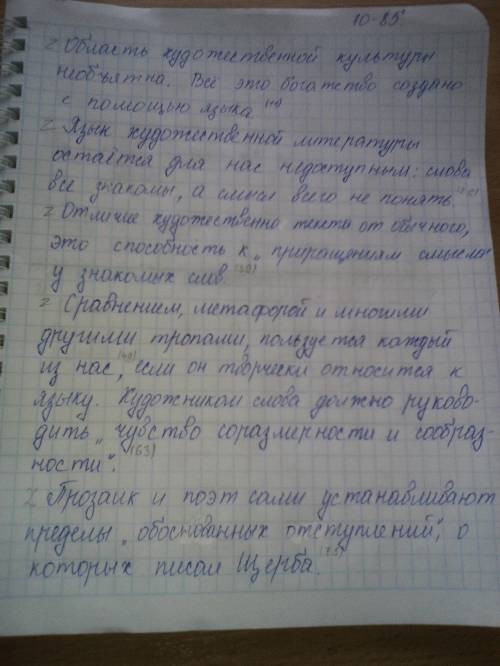 10-85
Z Область художественной культуры
необъятна. Всё это богатство создано
с помощью языка.
Z Язык художественной литературы
остаётся для нас недоступным: слова
все знакомы, а смысл всего не понять.
Z Отличие художественно текста от обычного,
это способность к „приращениям смысла
у знакомых слов.
Z Сравнением, метафорой и многими
другими тропами, пользуется каждый
из нас, если он творчески относится к
языку. Художником слова должно руково-
дить „чувство соразмерности и сообраз-
ности". (63)
Z Прозаик и поэт сами устанавливают
пределы „обоснованных отступлений", о
которых писал Щерба. (75)